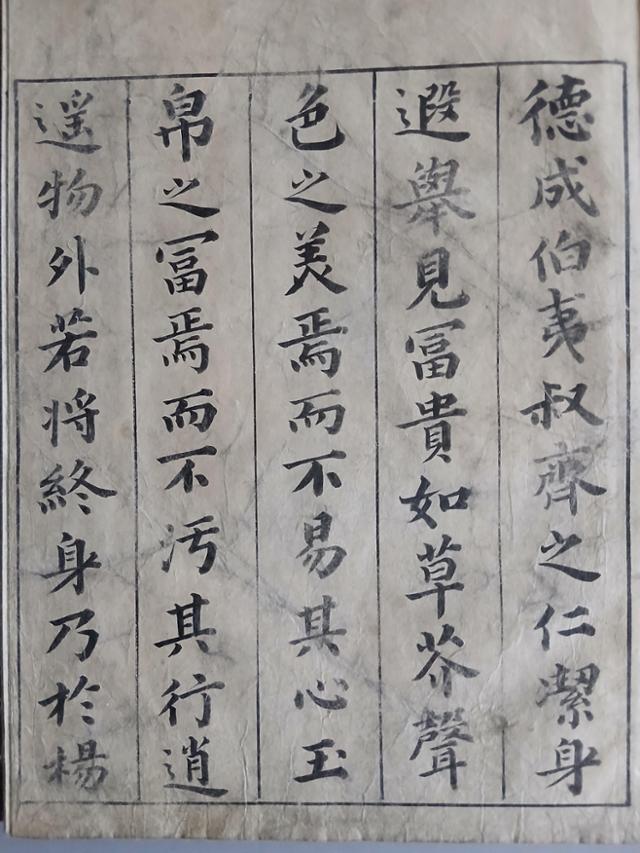 德成伯夷叔齊之仁潔身
遐舉見冨貴如草芥聲
色之美焉而不易其心玉
帛之冨焉而不污其行逍
遥物外若将終身乃於楊